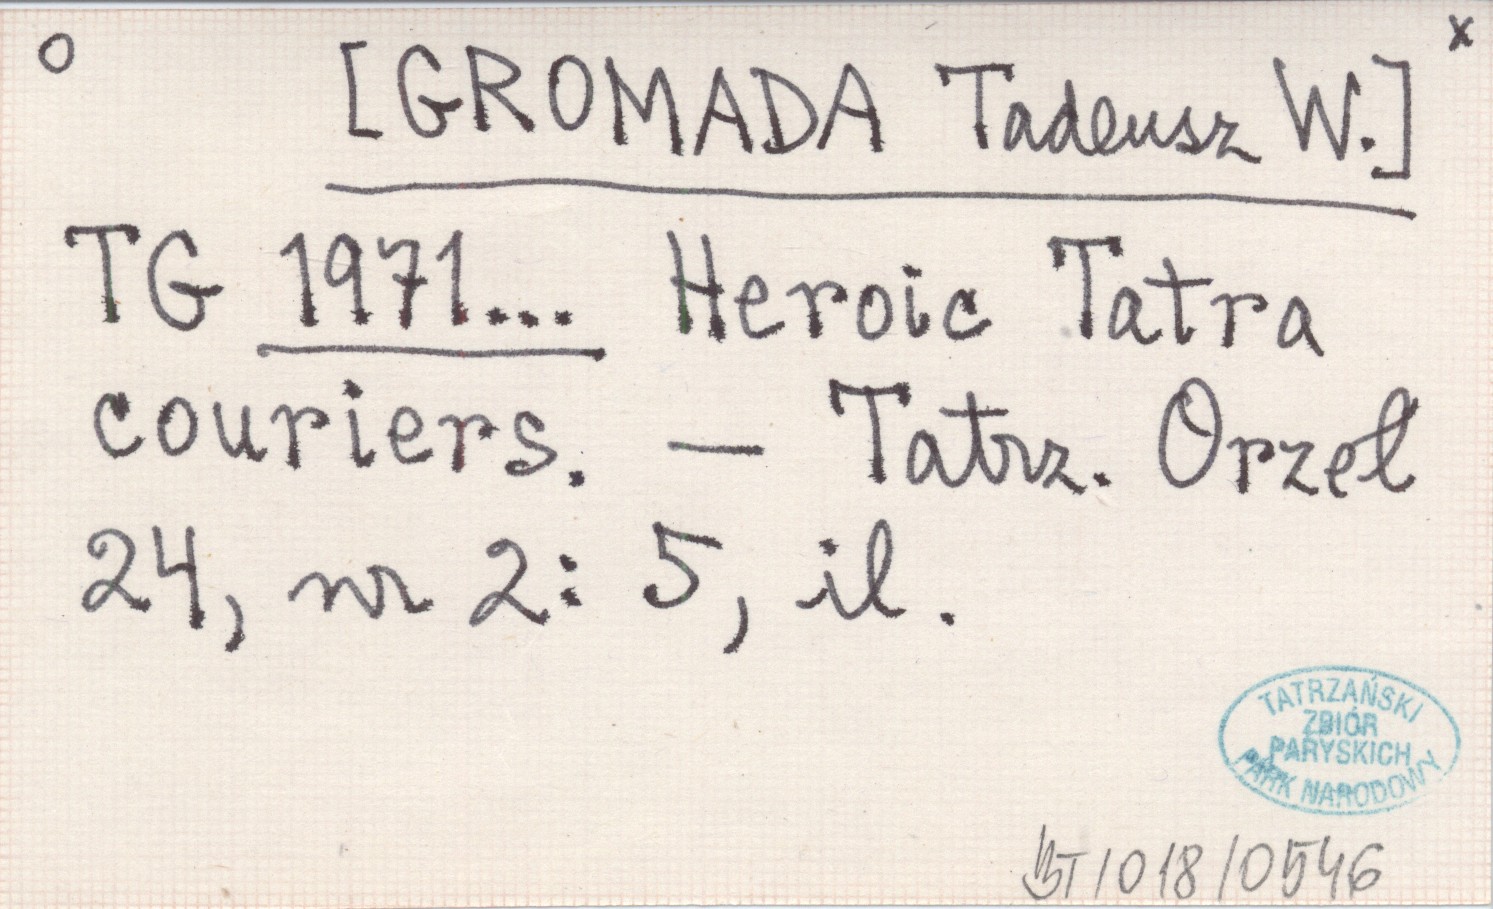 O
x
[GROMADA Tadeusz W.]
TG 1971... Heroic Tatra
couriers. — Tatrz. Orzeł
24, nr 2: 5, il.
TATRZAŃSKI
ZBIÓR
PARYSKICH
PARK NARODOWY
BT/018/0546